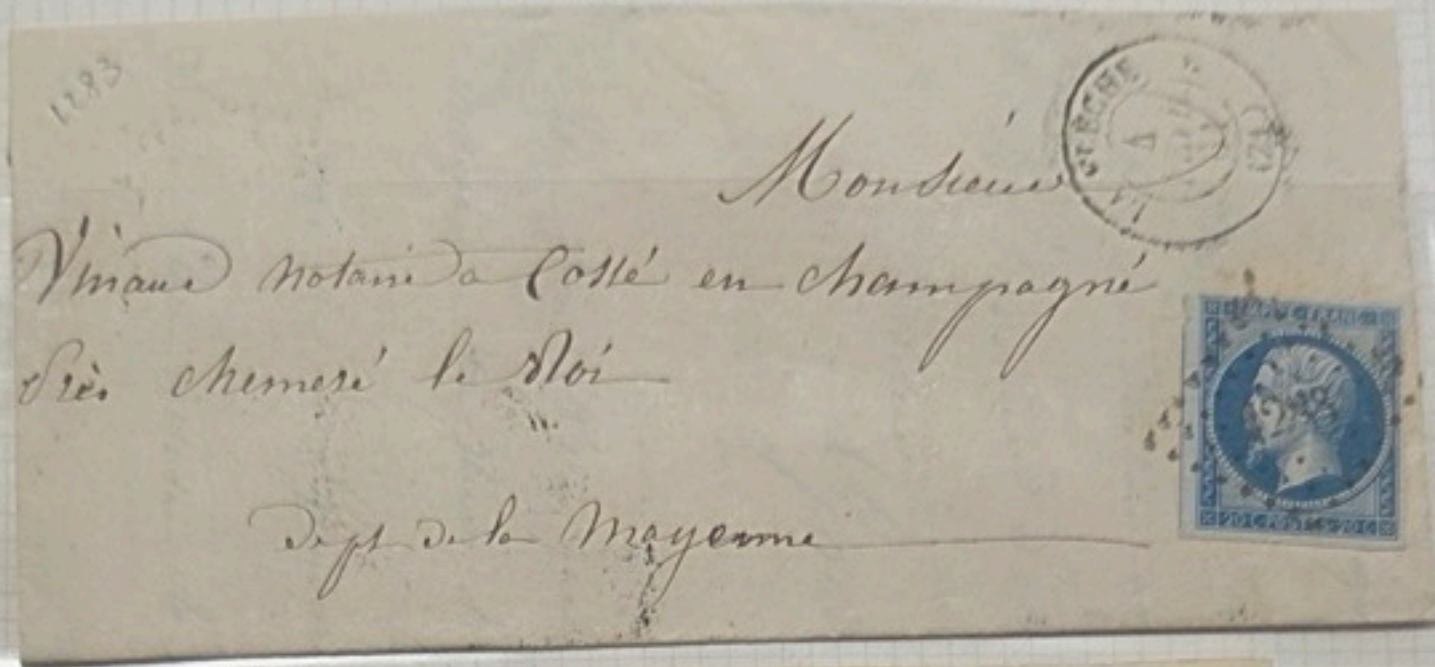 1283
Monsieur
Vinaud notaire a Cossé en champagné
Près chemeré le Roi
dept de la Mayenne
LA FLÈCHE (72)
EMPIRE FRANC
20 C. POSTES 20 C.